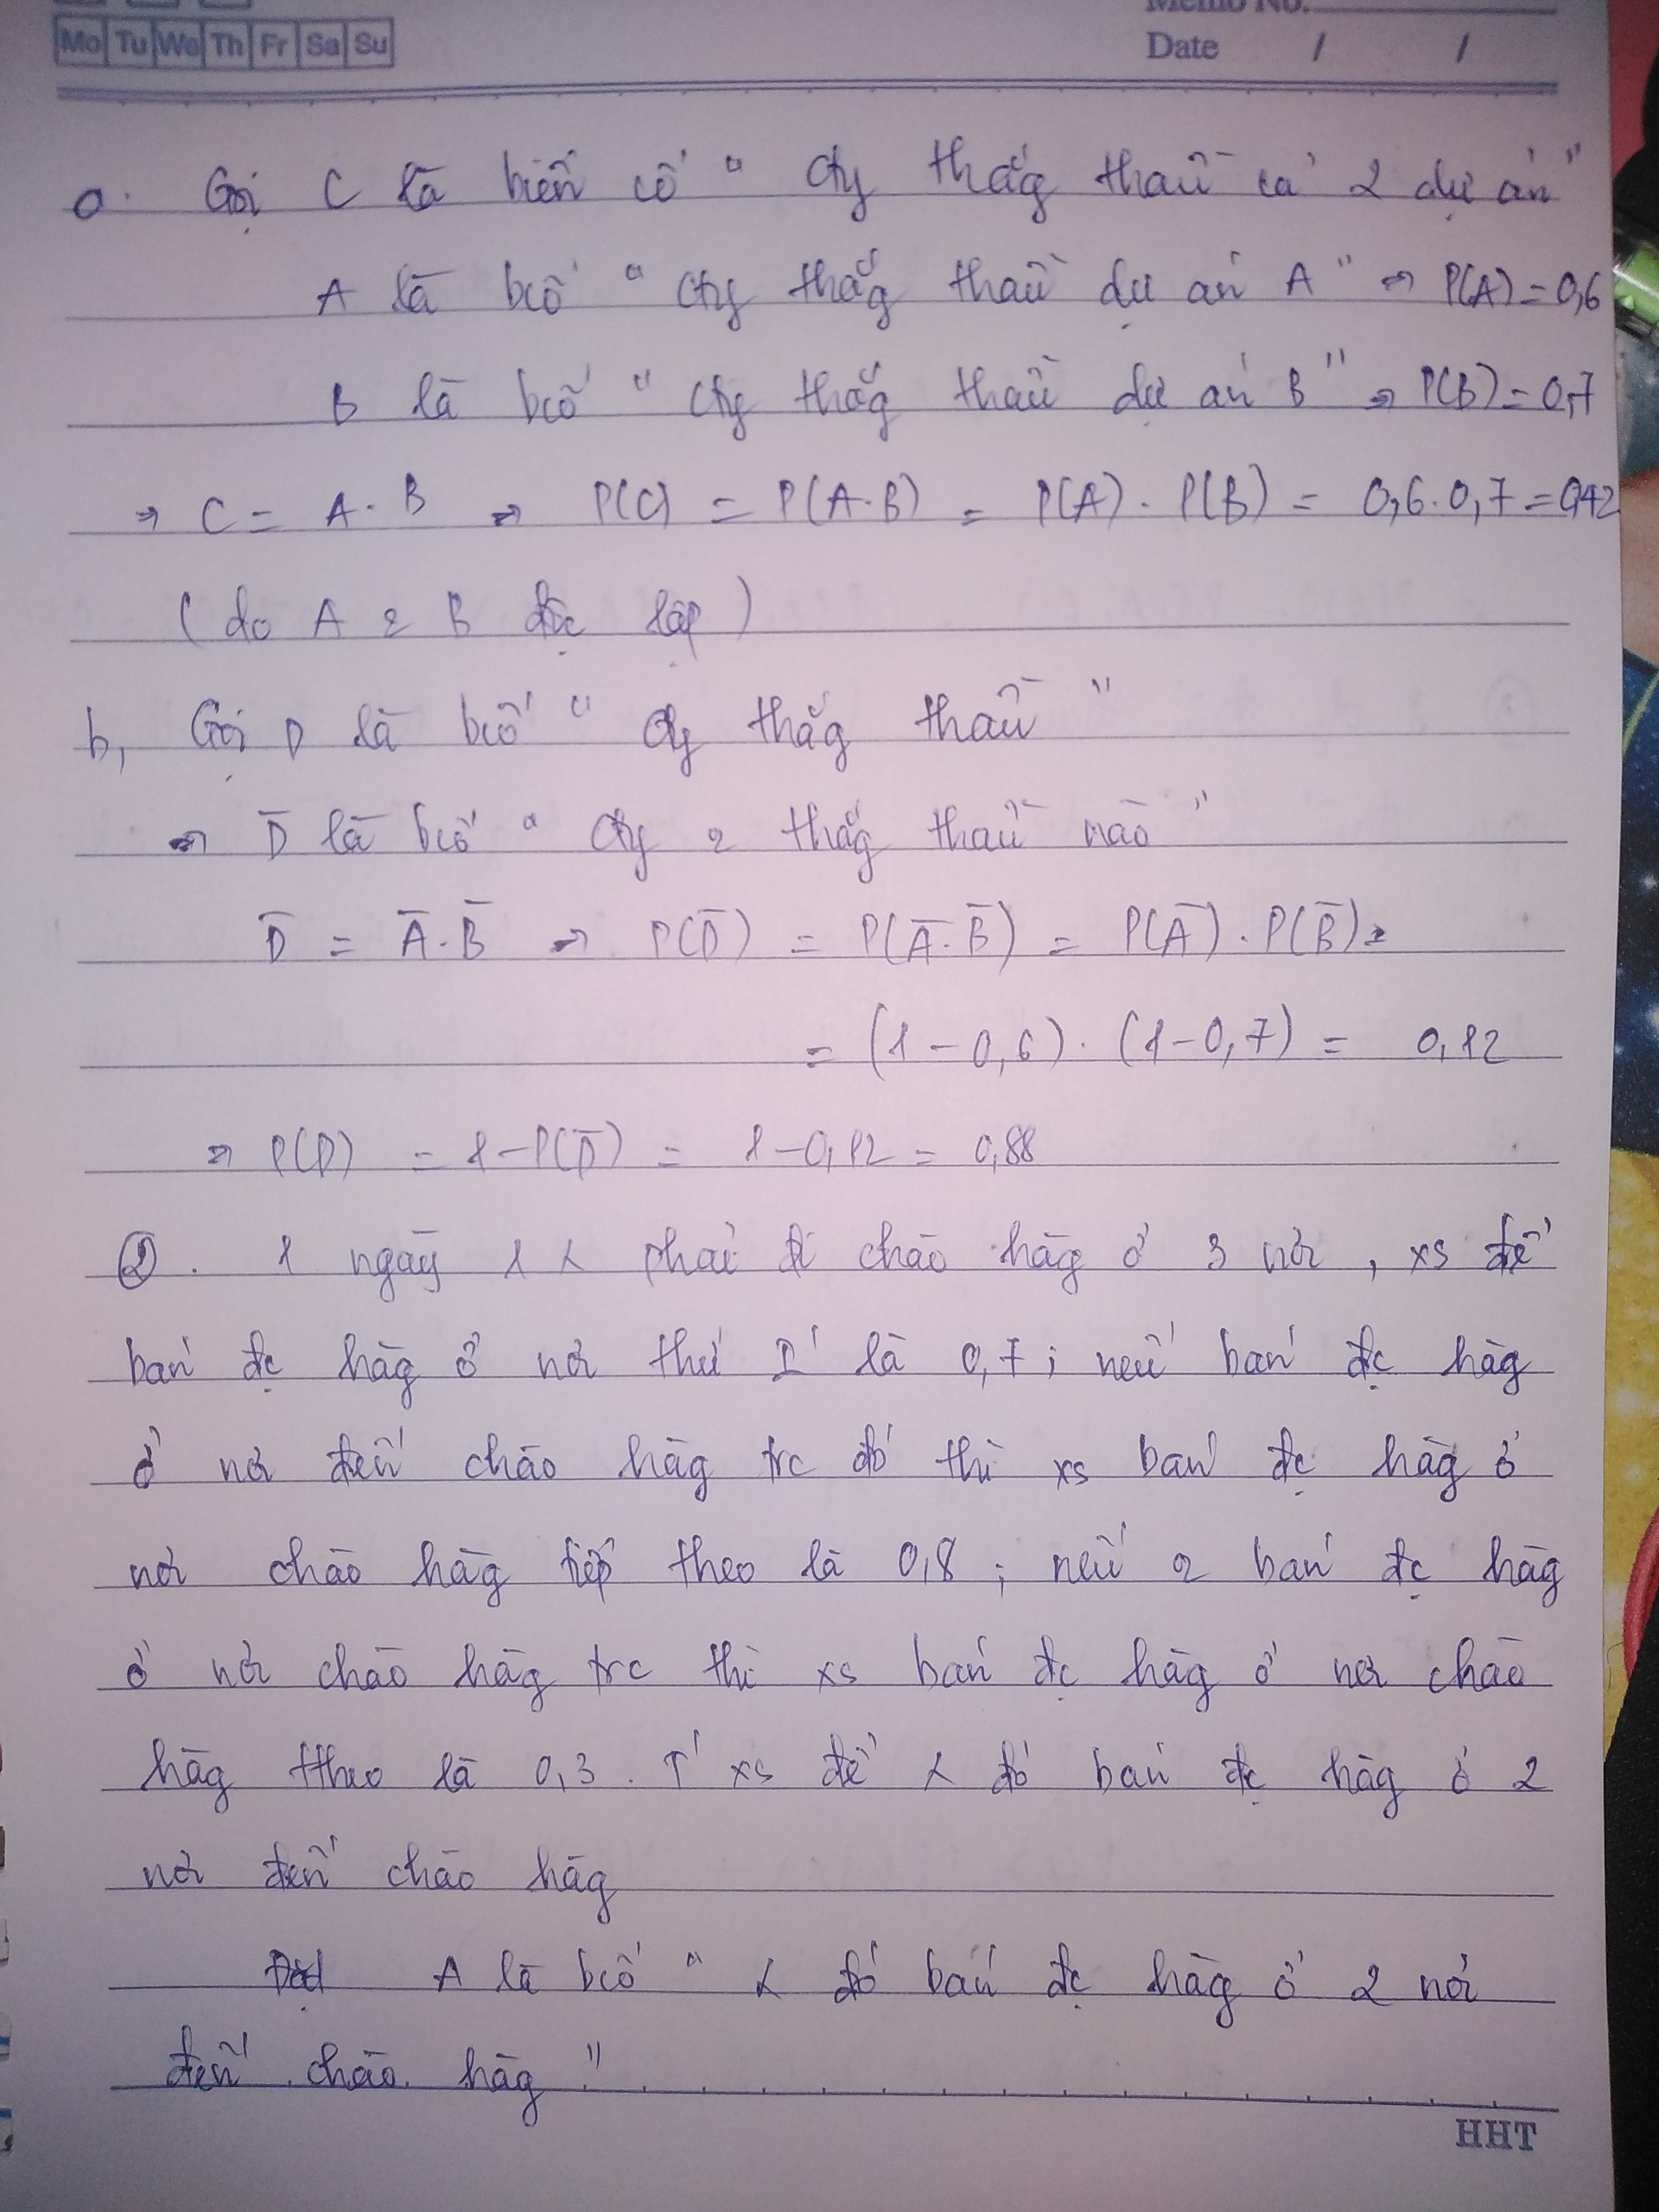 Mo Tu We Th Fr Sa Su
Memo No.
Date / /
a. Gọi C là biến cố " Cty thắg thầu cả 2 dự án "
A là bcố " Cty thắg thầu dự án A " => P(A) = 0,6
B là bcố " Cty thắg thầu dự án B " => P(B) = 0,7
=> C = A . B => P(C) = P(A.B) = P(A) . P(B) = 0,6.0,7 = 0,42
( do A & B độc lập )
b, Gọi D là bcố " Cty thắg thầu "
=> D̄ là bcố " Cty 2 thắg thầu nào "
D̄ = Ā.B̄ => P(D̄) = P(Ā.B̄) = P(Ā) . P(B̄) =
= (1 - 0,6) . (1 - 0,7) = 0,12
=> P(D) = 1 - P(D̄) = 1 - 0,12 = 0,88
②. 1 ngày 1 λ phải đi chào hàg ở 3 nơi , xs để
bán đc hàg ở nơi thứ I' là 0,7 ; nếu bán đc hàg
ở nơi đến chào hàg trc đó thì xs bán đc hàg ở
nơi chào hàg tiếp theo là 0,8 ; nếu 2 bán đc hàg
ở nơi chào hàg trc thì xs bán đc hàg ở nơi chào
hàg ttheo là 0,3 . T' xs để λ đó bán đc hàg ở 2
nơi đến chào hàg
A là bcố " λ đó bán đc hàg ở 2 nơi
đến chào hàg "
HHT